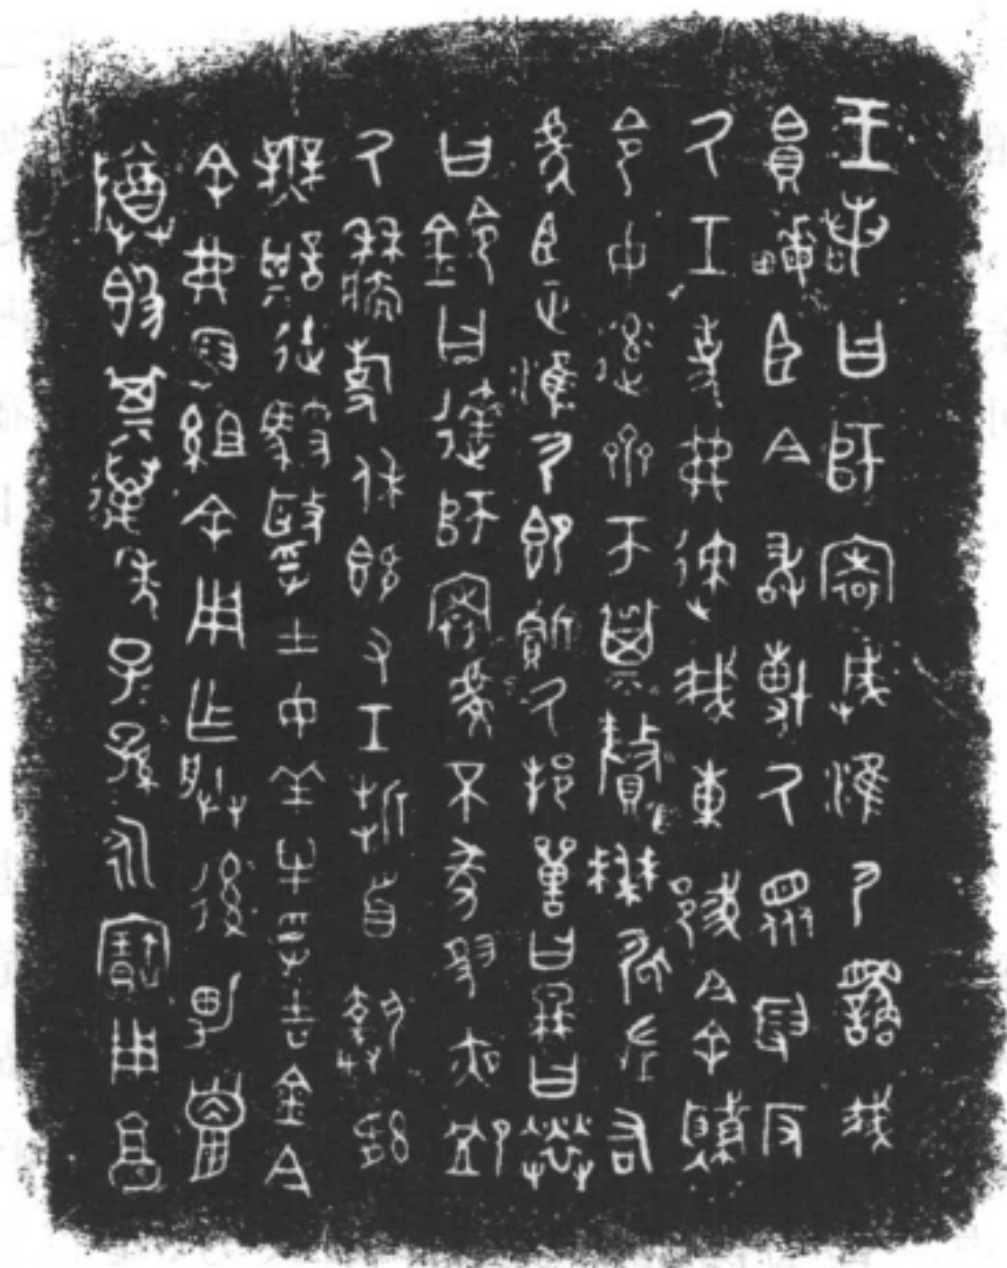 王若曰師寰𢦏淮尸繇我
帛畮臣今敢博厥眾叚反
厥工吏弗速我東𢧁今余肇
令女𨖷齊帀㠱釐僰尸左右
虎臣正淮尸即厥邦嘼曰冉曰
曰鈴曰達師寰虔不㒸夙夜卹
厥牆事休既又工折首執訊
無諆徒馭毆孚士女羊牛孚吉金今
余弗叚組余用乍朕後男巤
尊𣪘其萬年子子孫孫永寶用享